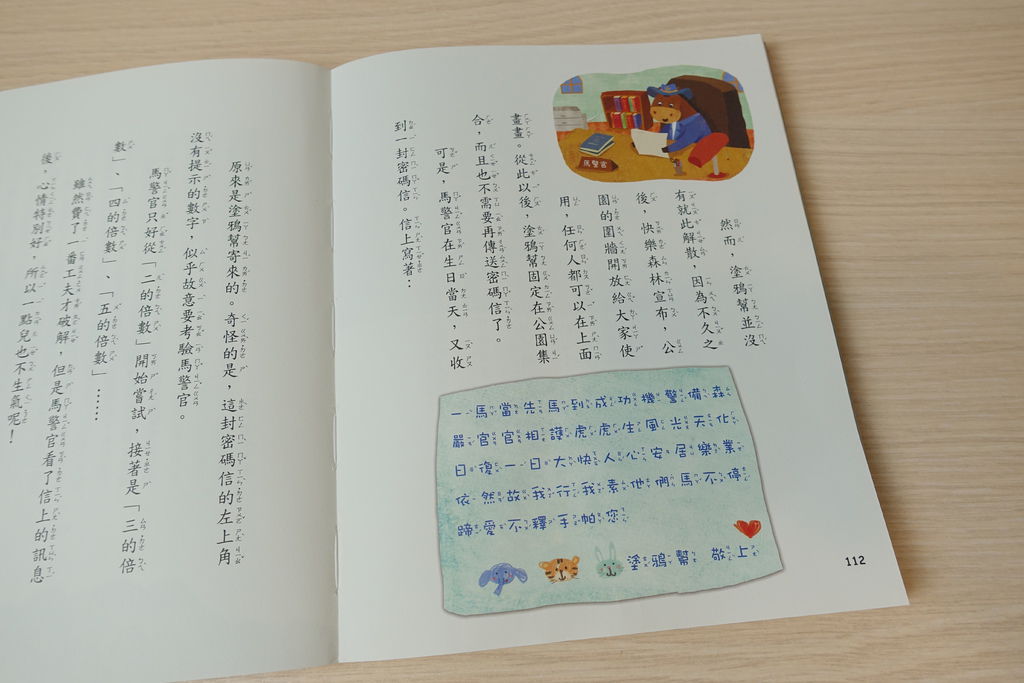 然而，塗鴉幫並沒
有就此解散，因為不久之
後，快樂森林宣布，公
園的圍牆開放給大家使
用，任何人都可以在上面
畫畫。從此以後，塗鴉幫固定在公園集
合，而且也不需要再傳送密碼信了。
可是，馬警官在生日當天，又收
到一封密碼信。信上寫著：
馬警官
一馬當先馬到成功機警備森
嚴官官相護虎虎生風光天化
日復一日大快人心安居樂業
依然故我行我素他們馬不停
蹄愛不釋手帕您
塗鴉幫 敬上
112
原來是塗鴉幫寄來的。奇怪的是，這封密碼信的左上角
沒有提示的數字，似乎故意要考驗馬警官。
馬警官只好從「二的倍數」開始嘗試，接著是「三的倍
數」、「四的倍數」、「五的倍數」……
雖然費了一番工夫才破解，但是馬警官看了信上的訊息
後，心情特別好，所以一點兒也不生氣呢！